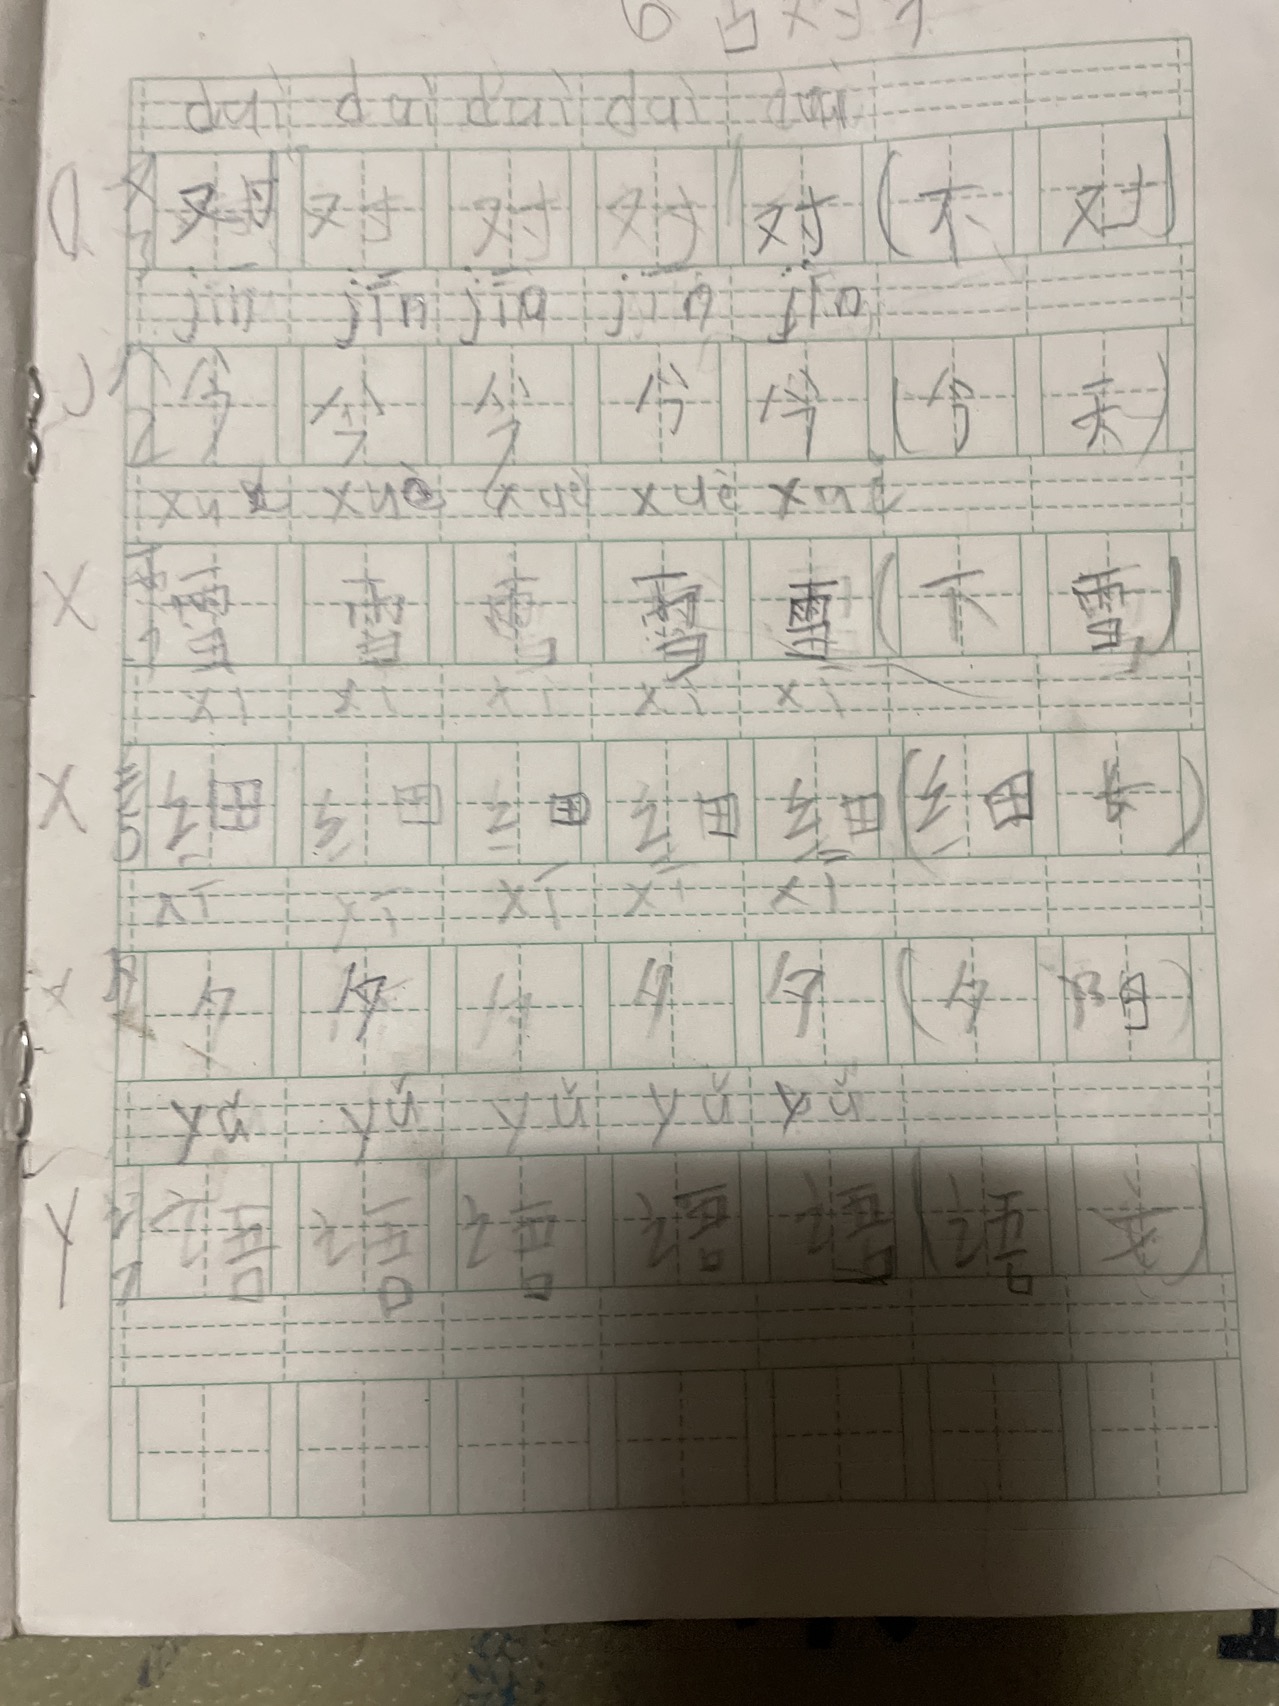 6 古对今
duì duì duì duì duì
D 又 对 对 对 对 对 (不 对)
jīn jīn jīn jīn jīn
J 人 今 今 今 今 今 (今 天)
xuě xuě xuě xuě xuě
X 雪 雪 雪 雪 雪 (下 雪)
xì xì xì xì xì
X 纟 细 细 细 细 细 (细 长)
xī xī xī xī xī
X 夕 夕 夕 夕 夕 夕 (夕 阳)
yǔ yǔ yǔ yǔ yǔ
Y 讠 语 语 语 语 语 (语 文)